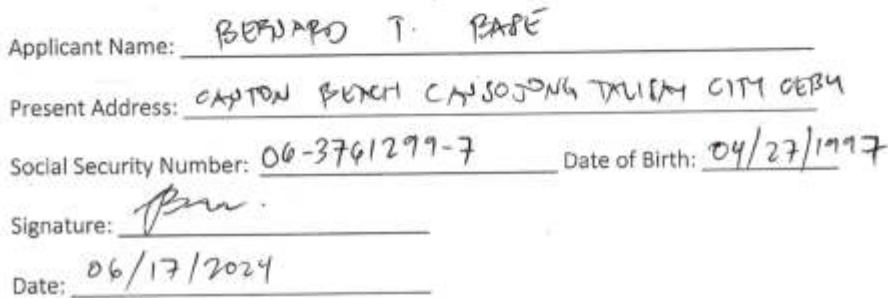 Applicant Name: BERNARD T. BASÉ
Present Address: CANTON BEACH CANSOJONG TALISAY CITY CEBU
Social Security Number: 06-3761299-7 Date of Birth: 04/27/1997
Signature:
Date: 06/17/2024